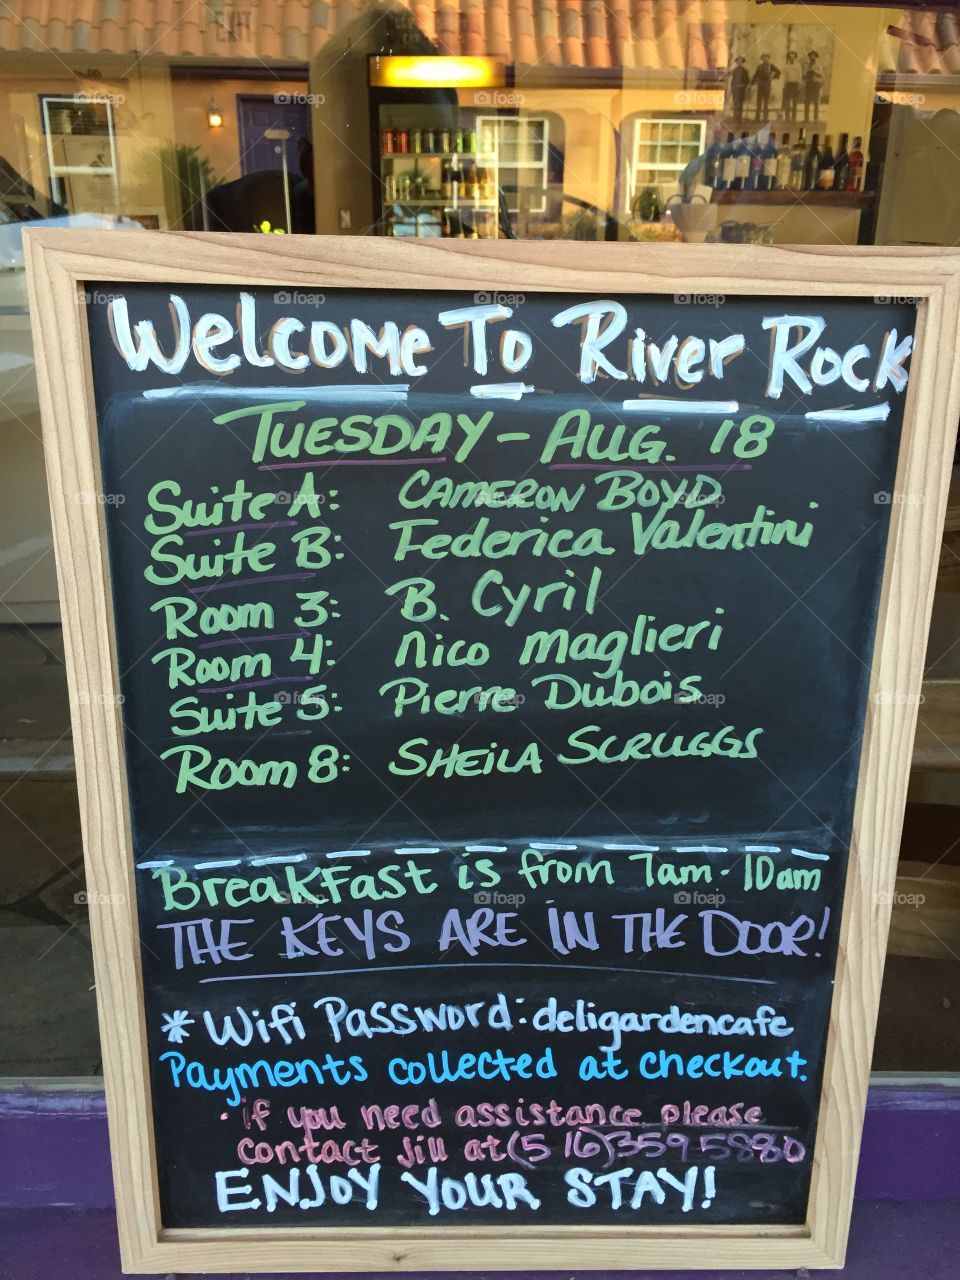 Welcome To River Rock
TUESDAY - AUG. 18
Suite A: CAMERON BOYD
Suite B: Federica Valentini
Room 3: B. Cyril
Room 4: Nico Maglieri
Suite 5: Pierre Dubois
Room 8: SHEILA SCRUGGS
BreaKFast is from 7am - 10am
THE KEYS ARE IN THE DOOR!
* Wifi Password: deligardencafe
Payments collected at checkout.
· if you need assistance please
contact Jill at (516)359 5880
ENJOY YOUR STAY!